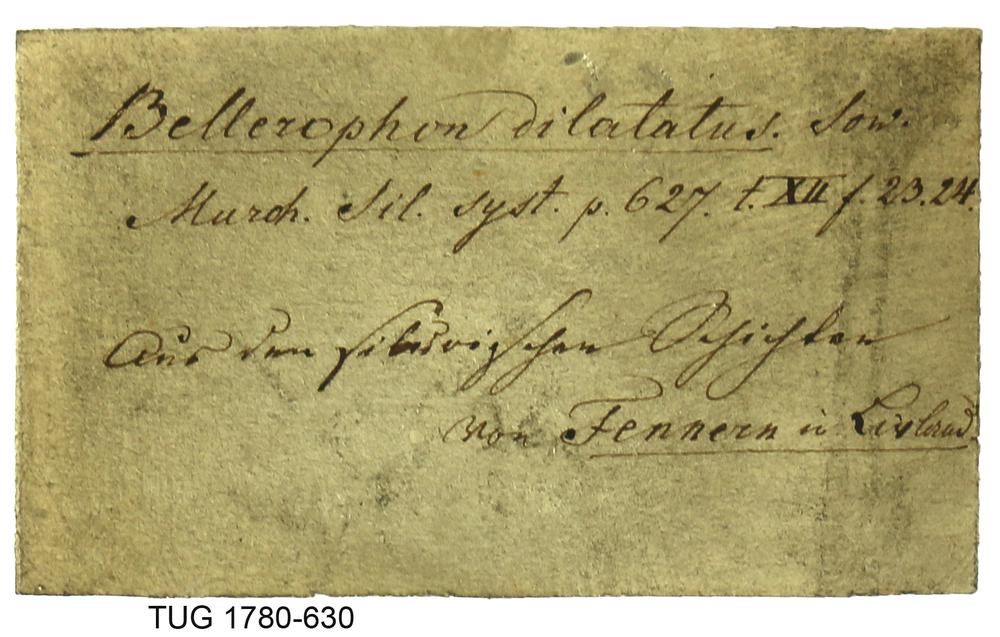 Bellerophon dilatatus. Sow.
Murch. Sil. syst. p. 627. t. XII f. 23. 24.
Aus den silurischen Schichten
von Fennern in Livland.
TUG 1780-630